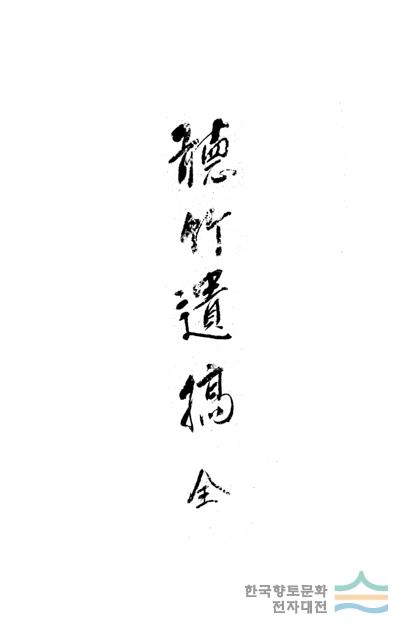 聽竹遺稿 全
한국향토문화
전자대전